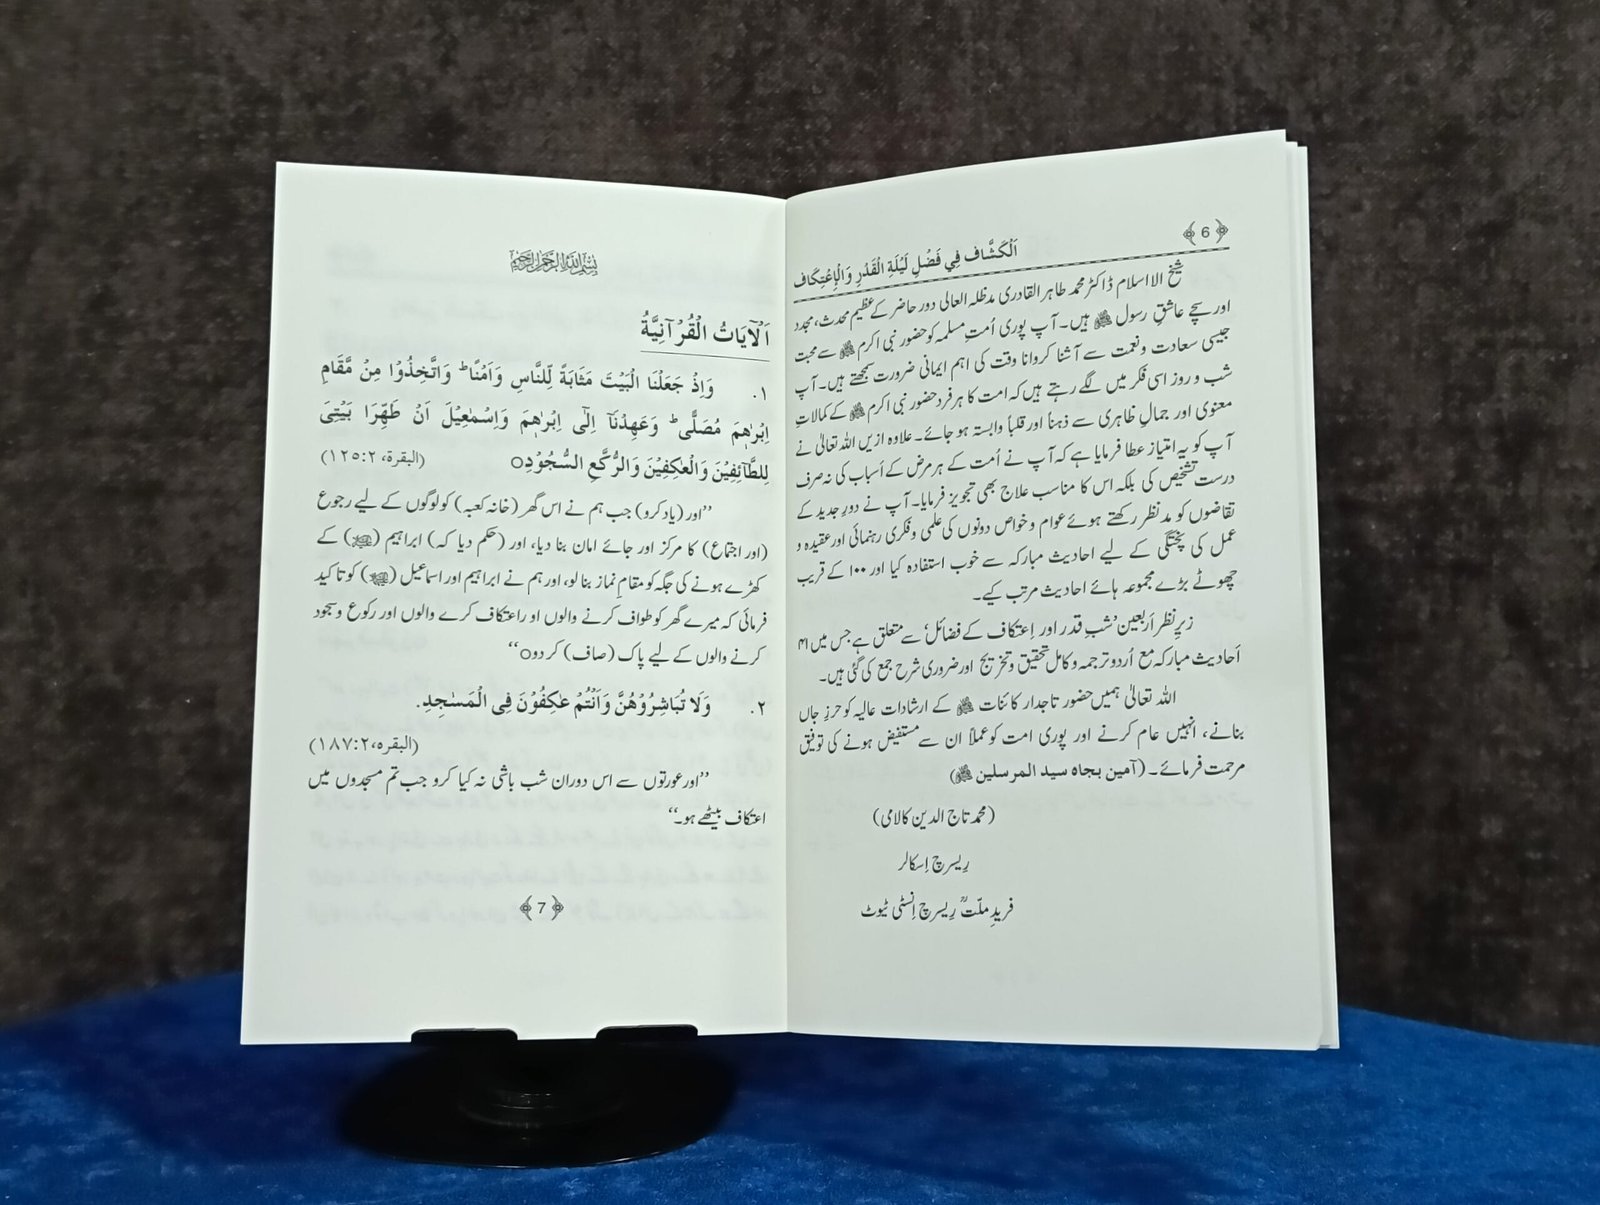 ﴿6﴾
اَلْكَشَّاف فِي فَضْلِ لَيْلَةِ الْقَدْرِ وَالْإِعْتِكَاف
شیخ الااسلام ڈاکٹر محمد طاہر القادری مدظلہ العالی دور حاضر کے عظیم محدث، مجدد
اور سچے عاشقِ رسول ﷺ ہیں۔ آپ پوری اُمتِ مسلمہ کو حضور نبی اکرم ﷺ سے محبت
جیسی سعادت و نعمت سے آشنا کروانا وقت کی اہم ایمانی ضرورت سمجھتے ہیں۔ آپ
شب و روز اسی فکر میں لگے رہتے ہیں کہ امت کا ہر فرد حضور نبی اکرم ﷺ کے کمالاتِ
معنوی اور جمالِ ظاہری سے ذہناً اور قلباً وابستہ ہو جائے۔ علاوہ ازیں اللہ تعالیٰ نے
آپ کو یہ امتیاز عطا فرمایا ہے کہ آپ نے اُمت کے ہر مرض کے اَسباب کی نہ صرف
درست تشخص کی بلکہ اس کا مناسب علاج بھی تجویز فرمایا۔ آپ نے دورِ جدید کے
تقاضوں کو مدنظر رکھتے ہوئے عوام و خواص دونوں کی علمی و فکری رہنمائی اور عقیدہ و
عمل کی پختگی کے لیے احادیث مبارکہ سے خوب استفادہ کیا اور ۱۰۰ کے قریب
چھوٹے بڑے مجموعہ ہائے احادیث مرتب کیے۔
زیرِ نظر اَربعین ’شبِ قدر اور اِعتکاف کے فضائل‘ سے متعلق ہے جس میں ۴۱
اَحادیث مبارکہ مع اُردو ترجمہ و کامل تحقیق و تخریج اور ضروری شرح جمع کی گئی ہیں۔
اللہ تعالیٰ ہمیں حضور تاجدار کائنات ﷺ کے ارشادات عالیہ کو حرزِ جاں
بنانے، انہیں عام کرنے اور پوری امت کو عملاً ان سے مستفیض ہونے کی توفیق
مرحمت فرمائے۔ (آمین بجاہ سید المرسلین ﷺ)
(محمد تاج الدین کالامی)
ریسرچ اِسکالر
فریدِ ملّتؒ ریسرچ اِنسٹی ٹیوٹ
بِسْمِ اللهِ الرَّحْمٰنِ الرَّحِيْمِ
اَلْآيَاتُ الْقُرْآنِيَّةُ
۱. وَاِذْ جَعَلْنَا الْبَيْتَ مَثَابَةً لِّلنَّاسِ وَاَمْنًا ؕ وَاتَّخِذُوْا مِنْ مَّقَامِ
اِبْرٰهٖمَ مُصَلًّى ؕ وَعَهِدْنَآ اِلٰٓى اِبْرٰهٖمَ وَاِسْمٰعِيْلَ اَنْ طَهِّرَا بَيْتِىَ
لِلطَّآئِفِيْنَ وَالْعٰكِفِيْنَ وَالرُّكَّعِ السُّجُوْدِ○ (البقرة، ۲: ۱۲۵)
’’اور (یاد کرو) جب ہم نے اس گھر (خانہ کعبہ) کو لوگوں کے لیے رجوع
(اور اجتماع) کا مرکز اور جائے امان بنا دیا، اور (حکم دیا کہ) ابراہیم (علیہ السلام) کے
کھڑے ہونے کی جگہ کو مقامِ نماز بنا لو، اور ہم نے ابراہیم اور اسماعیل (علیہ السلام) کو تاکید
فرمائی کہ میرے گھر کو طواف کرنے والوں او راعتکاف کرے والوں اور رکوع و سجود
کرنے والوں کے لیے پاک (صاف) کر دو○‘‘
۲. وَلَا تُبَاشِرُوْهُنَّ وَاَنْتُمْ عٰكِفُوْنَ فِى الْمَسٰجِدِ.
(البقره، ۲: ۱۸۷)
’’اور عورتوں سے اس دوران شب باشی نہ کیا کرو جب تم مسجدوں میں
اعتکاف بیٹھے ہو۔‘‘
﴿7﴾